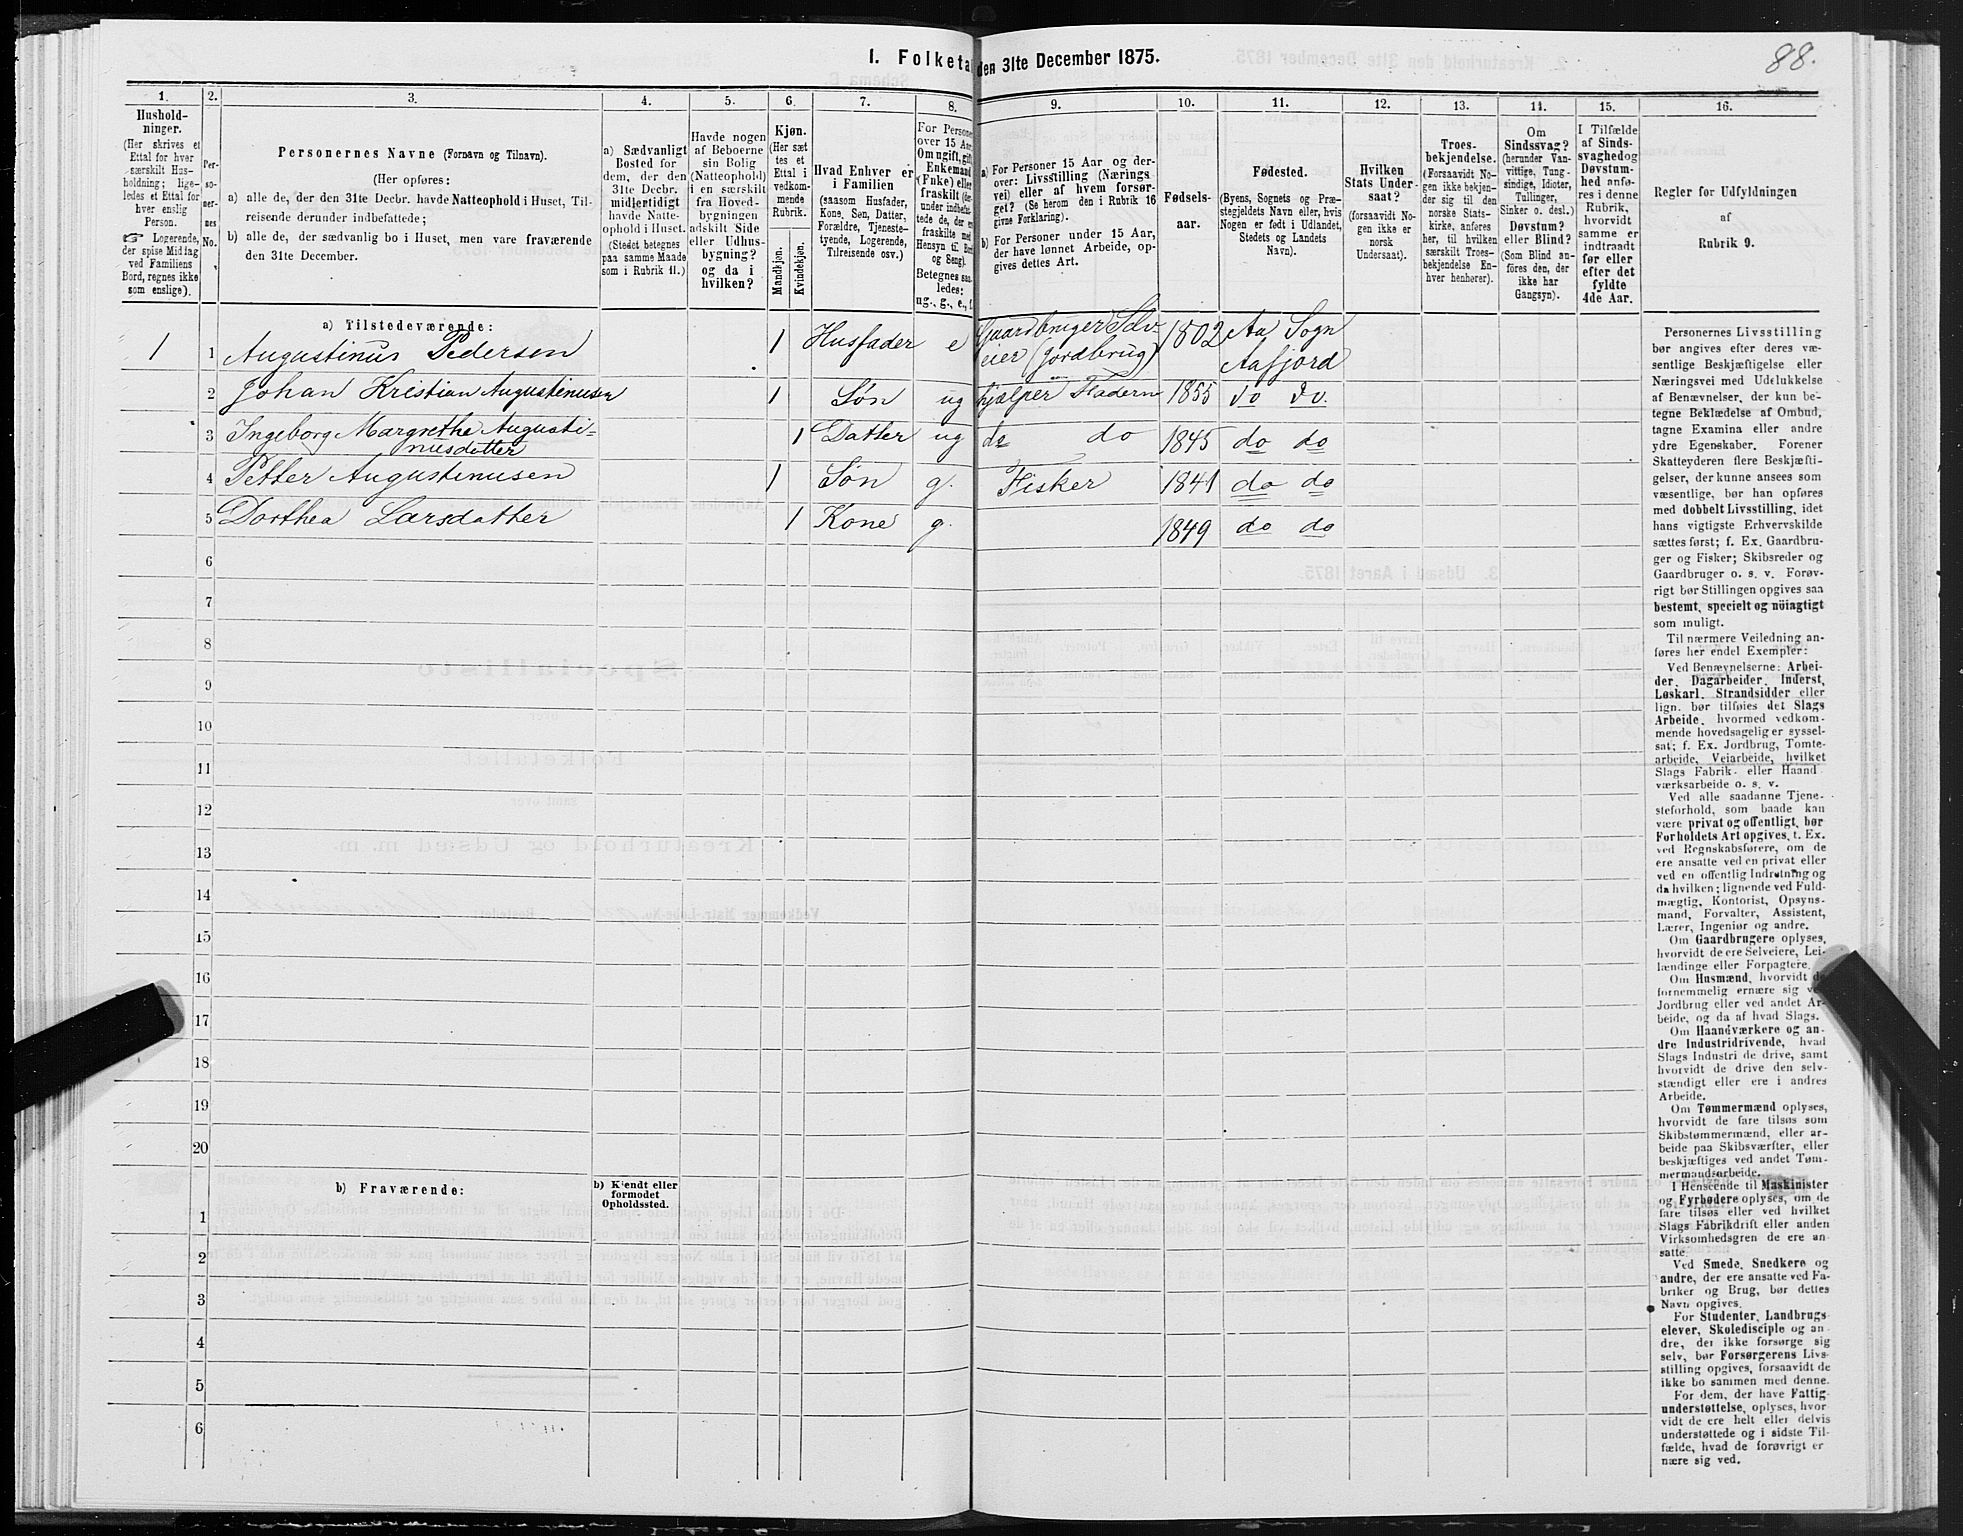 88.
I. Folketa den 31te December 1875.
1. 2. 3. 4. 5. 6. 7. 8. 9. 10. 11. 12. 13. 14. 15. 16.
Hushold-
ninger.
(Her skrives et
Ettal for hver
særskilt Hus-
holdning; lige-
ledes et Ettal for
hver enslig
Person.
☞ Logerende,
der spise Middag
ved Familiens
Bord, regnes ikke
som enslige).
Per-
so-
ner-
nes
No.
Personernes Navne (Fornavn og Tilnavn).
(Her opføres:
a) alle de, der den 31te Decbr. havde Natteophold i Huset, Til-
reisende derunder indbefattede;
b) alle de, der sædvanlig bo i Huset, men vare fraværende
den 31te December.
a) Sædvanligt
Bosted for
dem, der den
31te Decbr.
midlertidigt
havde Natte-
ophold i Huset.
(Stedet betegnes
paa samme Maade
som i Rubrik 11.)
Havde nogen
af Beboerne
sin Bolig
(Natteophold)
i en særskilt
fra Hoved-
bygningen
adskilt Side
eller Udhus-
bygning?
og da i
hvilken?
Kjøn.
(Her sæt
tes et
Ettal i
vedkom-
mende
Rubrik.
Mandkjøn.
Kvindekjøn.
Hvad Enhver er
i Familien
(saasom Husfader,
Kone, Søn, Datter,
Forældre, Tjeneste-
tyende, Logerende,
Tilreisende osv.)
For Persone
over 15 Aar
Om ugift, gift
Enkemand
(Enke) eller
fraskilt (der-
under indbefat-
tede de, der en
fraskilte med
Hensyn til Bord
og Seng).
Betegnes saa-
ledes:
ug., g., e., f.
a) For Personer 15 Aar og der-
over: Livsstilling (Nærings
vei) eller af hvem forsør-
get? (Se herom den i Rubrik 16
givne Forklaring).
b) For Personer under 15 Aar,
der have lønnet Arbeide, op-
gives dettes Art.
Fødsels-
aar.
Fødested.
(Byens, Sognets og Præ-
stegjeldets Navn eller, hvis
Nogen er født i Udlandet,
Stedets og Landets
Navn).
Hvilken
Stats Under-
saat?
(forsaavidt No-
gen ikke er
norsk
Undersaat).
Troes-
bekjendelse.
(Forsaavidt No-
gen ikke bekjen-
der sig til den
norske Stats-
kirke, anføres
her, til hvilken
særskilt Troes-
bekjendelse En-
hver henhører).
Om
Sindssvag?
(herunder Van-
vittige, Tung-
sindige, Idioter,
Tullinger,
Sinker o. desl.)
Døvstum?
eller Blind?
(Som Blind an-
føres den, der
ikke har
Gangsyn).
I Tilfælde
af Sinds-
svaghed og
Døvstum-
hed anfø-
res i denne
Rubrik,
hvorvidt
samme er
indtraadt
før eller
efter det
fyldte
4de Aar.
Regler for Udfyldningen
af
Rubrik 9.
a) Tilstedeværende:
1 1 Augustinus Pedersen 1 Husfader e Gaardbruger Selv-
eier (Jordbrug) 1802 Aa Sogn
Aafjord
2 Johan Kristian Augustinusen 1 Søn ug hjælper Faderen 1855 do do.
3 Ingeborg Margrethe Augusti-
nusdatter 1 Datter ug do do 1845 do do
4 Petter Augustinusen 1 Søn g. Fisker 1841 do do
5 Dorthea Larsdatter 1 Kone g. 1849 do do
6
7
8
9
10
11
12
13
14
15
16
17
18
19
20
b) Fraværende:
b) Kjendt eller
formodet
Opholdssted.
1
2
3
4
5
6
Personernes Livsstilling
bør angives efter deres væ-
sentlige Beskjæftigelse eller
Næringsvei med Udelukkelse
af Benævnelser, der kun be-
tegne Beklædelse af Ombud,
tagne Examina eller andre
ydre Egenskaber. Forener
Skatteyderen flere Beskjæfti-
gelser, der kunne ansees som
væsentlige, bør han opføres
med dobbelt Livsstilling, idet
hans vigtigste Erhvervskilde
sættes først; f. Ex. Gaardbru-
ger og Fisker; Skibsreder og
Gaardbruger o. s. v. Forøv-
rigt bør Stillingen opgives saa
bestemt, specielt og nöiagtigt
som muligt.
Til nærmere Veiledning an-
føres her endel Exempler:
Ved Benævnelserne: Arbei-
der, Dagarbeider, Inderst,
Løskarl, Strandsidder eller
lign. bør tilføies det Slags
Arbeide, hvormed vedkom-
mende hovedsagelig er syssel-
sat; f. Ex. Jordbrug, Tomte-
arbeide, Veiarbeide, hvilket
Slags Fabrik- eller Haand
værksarbeide o. s. v.
Ved alle saadanne Tjene-
steforhold, som baade kan
være privat og offentligt, bør
Forholdets Art opgives, t. Ex.
ved Regnskabsførere, om de
ere ansatte ved en privat eller
ved en offentlig Indretning og
da hvilken; lignende ved Fuld-
mægtig, Kontorist, Opsyns-
mand, Forvalter, Assistent,
Lærer, Ingeniør og andre.
Om Gaardbrugere oplyses,
hvorvidt de ere Selveiere, Lei-
lændinge eller Forpagtere.
Om Husmænd, hvorvidt de
fornemmelig ernære sig ved
Jordbrug eller ved andet Ar-
beide, og da af hvad Slags.
Om Haandværkere og an-
dre Industridrivende, hvad
Slags Industri de drive, samt
hvorvidt de drive den selv-
stændigt eller ere i andres
Arbeide.
Om Tømmermænd oplyses,
hvorvidt de fare tilsøs som
Skibstømmermænd, eller ar-
beide paa Skibsværfter, eller
beskjæftiges ved andet Tøm-
mermandsarbeide.
I Henseende til Maskinister
og Fyrbødere oplyses, om de
fare tilsøs eller ved hvilket
Slags Fabrikdrift eller anden
Virksomhedsgren de ere an-
satte.
Ved Smede, Snedkere og
andre, der ere ansatte ved Fa-
briker og Brug, bør dettes
Navn opgives.
For Studenter, Landbrugs-
elever, Skoledisciple og an-
dre, der ikke forsørge sig
selv, bør Forsørgerens Livs-
stilling opgives, forsaavidt de
ikke bo sammen med denne.
For dem, der have Fattig-
understøttelse, oplyses, hvor
vidt de ere helt eller delvis
understøttede og i sidste Til-
fælde, hvad de forøvrigt er
nære sig ved.